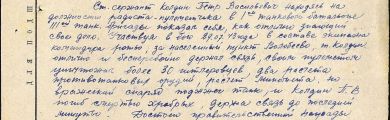 Ст. сержант Колдин Петр Васильевич находясь на
должности радиста-пулеметчика в 1ом танковом батальоне
111ой танк. бригады показал себя, как отлично знающий
свое дело. Участвуя в бою 27.07.43 года в составе экипажа
командира роты, за населенный пункт т. Колдин
отлично и бесперебойно держал связь, своим пулеметом
уничтожил более 30 гитлеровцев, два расчета
противотанковых орудий, расчет миномета, но
вражеский снаряд поджег танк, и Колдин П.В
погиб смертью храбрых держа связь до последней
минуты. Достоин правительственной награды